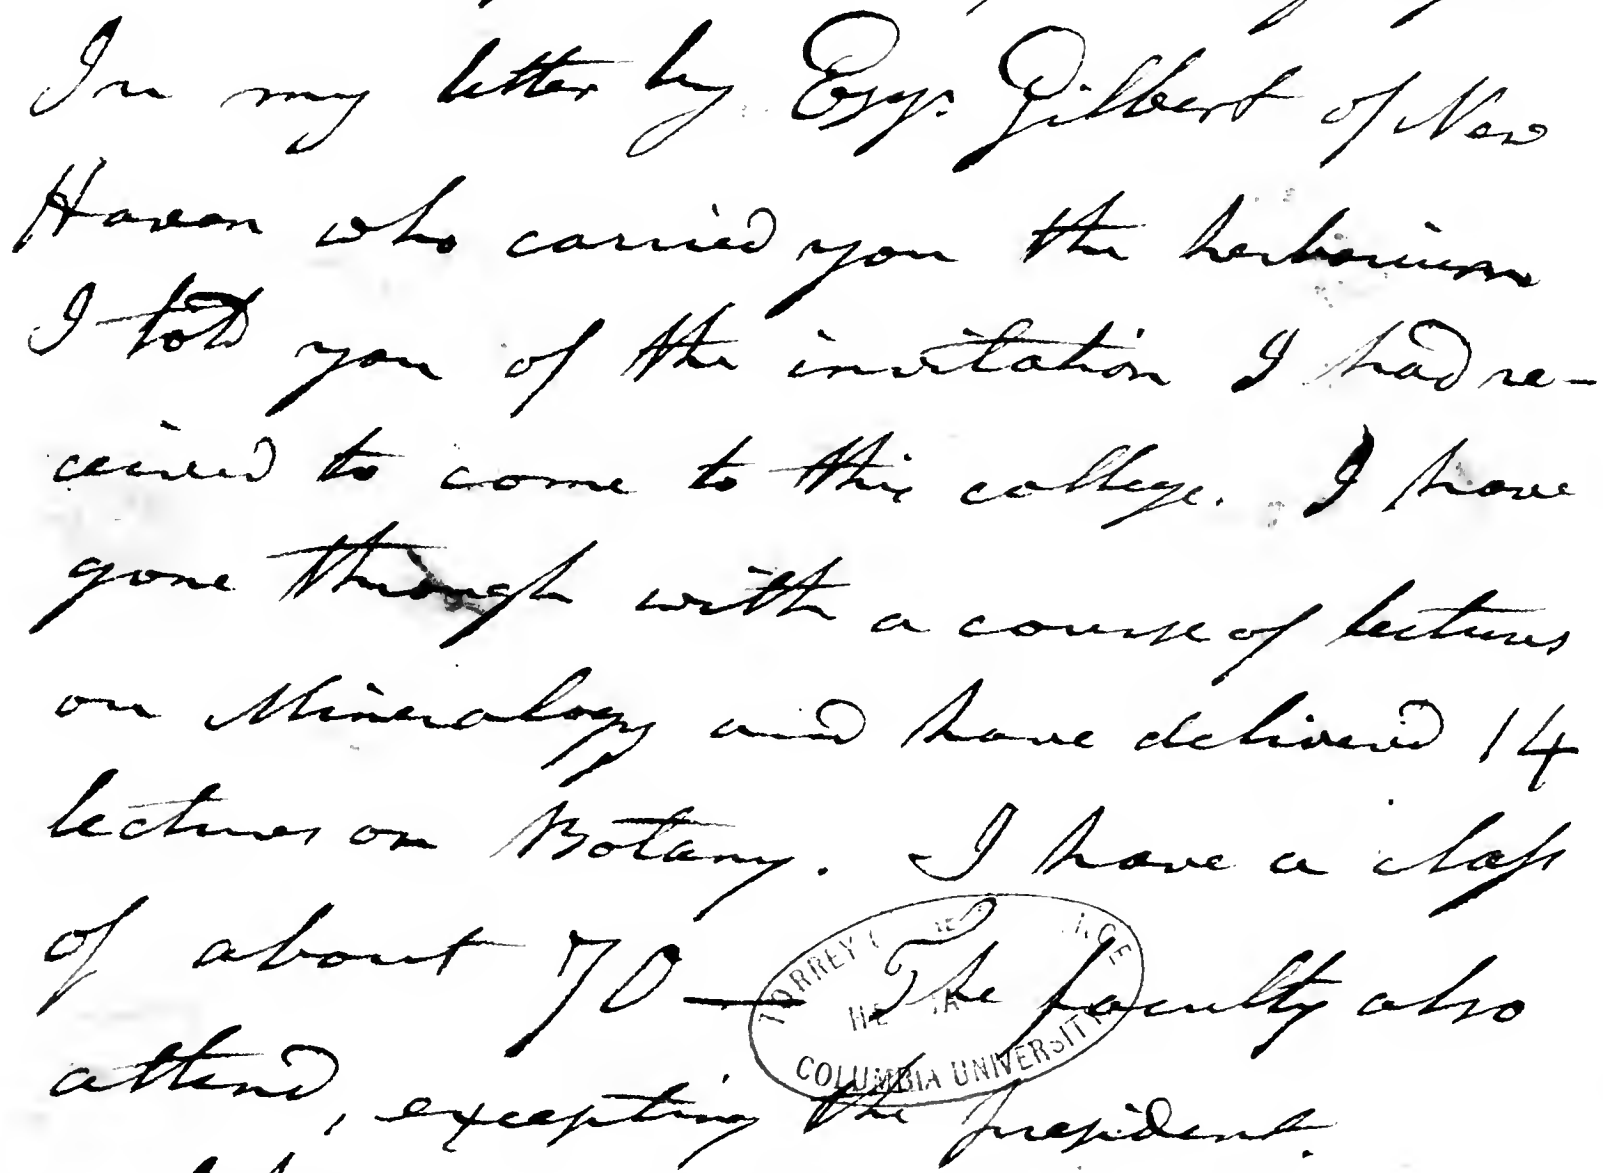 In my letter by Esqr. Gilbert of New
Haven who carried you the herbarium
I told you of the invitation I had re-
ceived to come to this college. I have
gone through with a course of lectures
on Mineralogy and have delivered 14
lectures on Botany. I have a class
of about 70— The faculty also
TORREY
COLUMBIA UNIVERSITY
attend, excepting the president.